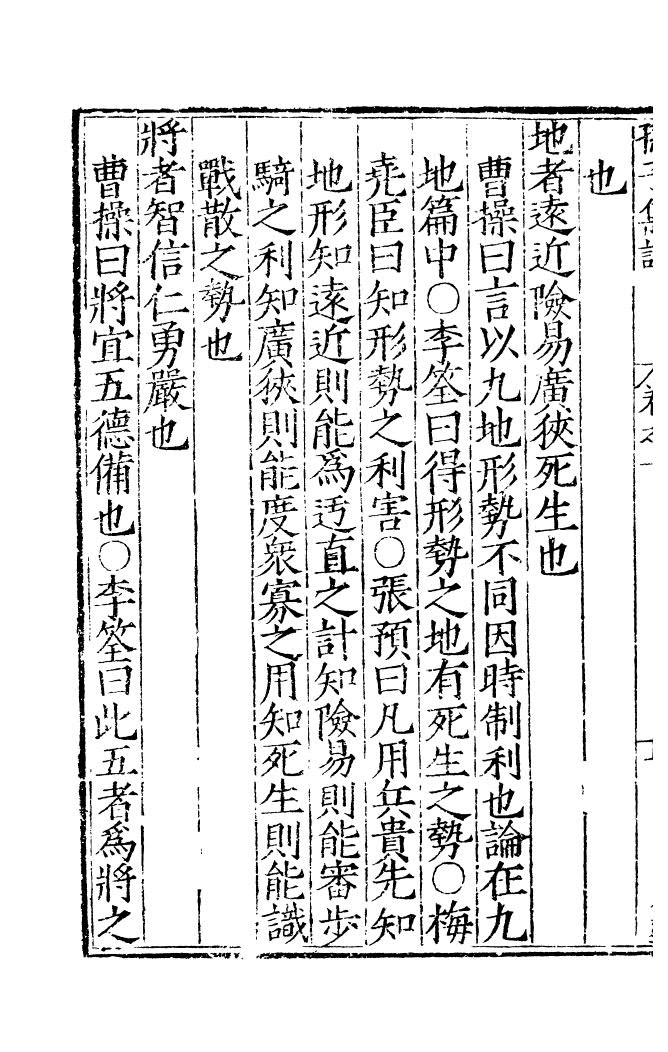 也
地者遠近險易廣狹死生也
曹操曰言以九地形勢不同因時制利也論在九
地篇中○李筌曰得形勢之地有死生之勢○梅
堯臣曰知形勢之利害○張預曰凡用兵貴先知
地形知遠近則能爲迃直之計知險易則能審步
騎之利知廣狹則能度衆寡之用知死生則能識
戰散之勢也
將者智信仁勇嚴也
曹操曰將宜五德備也○李筌曰此五者爲將之